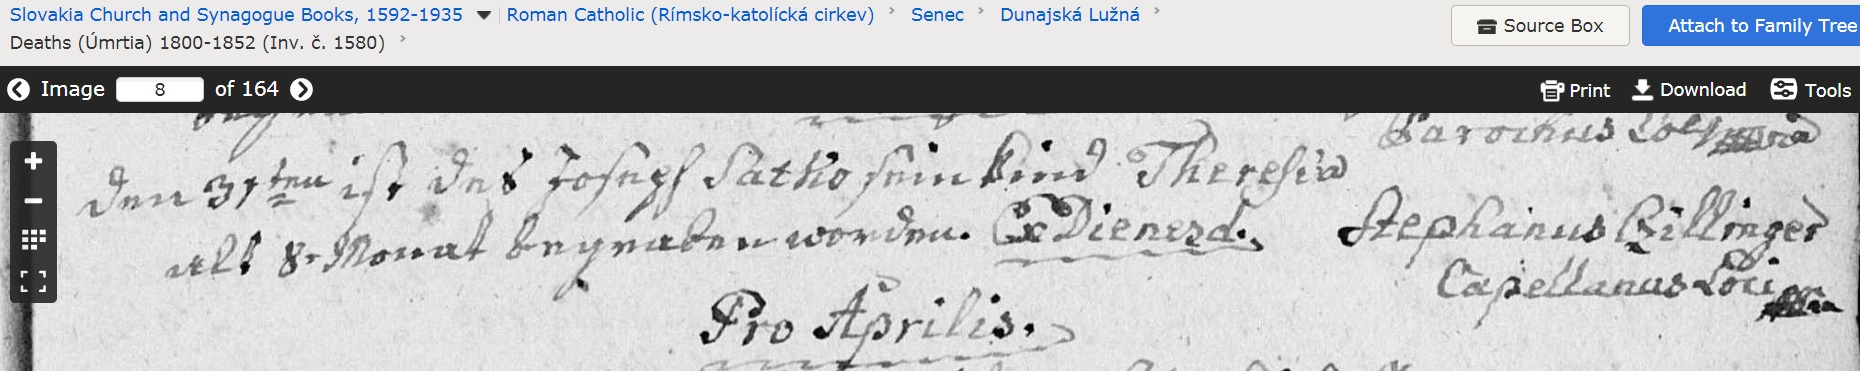 Slovakia Church and Synagogue Books, 1592-1935 Roman Catholic (Rímsko-katolícká cirkev) Senec Dunajská Lužná
Deaths (Úmrtia) 1800-1852 (Inv. č. 1580)
Source Box
Attach to Family Tree
Image 8 of 164
Print Download Tools
Parochus Loci
den 31ten ist des Joseph Satko sein Kind Theresia
alt 8. Monat begraben worden. Ex Dienerd. Stephanus Billinger
Capellanus Loci
Pro Aprilis.